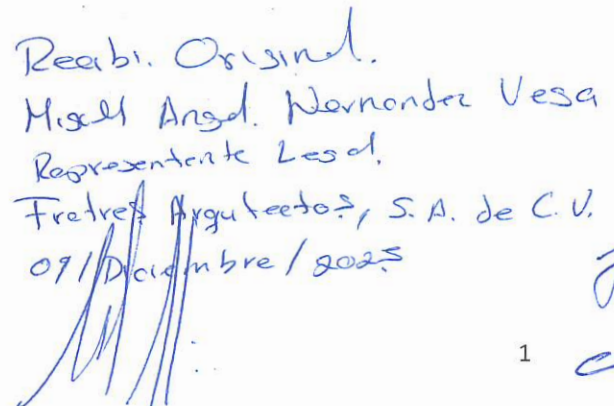 Recibi. Original.
Miguel Angel. Hernandez Vega
Representente Legal.
Fratres Arquitectos, S.A. de C.V.
09/Diciembre/2025
1